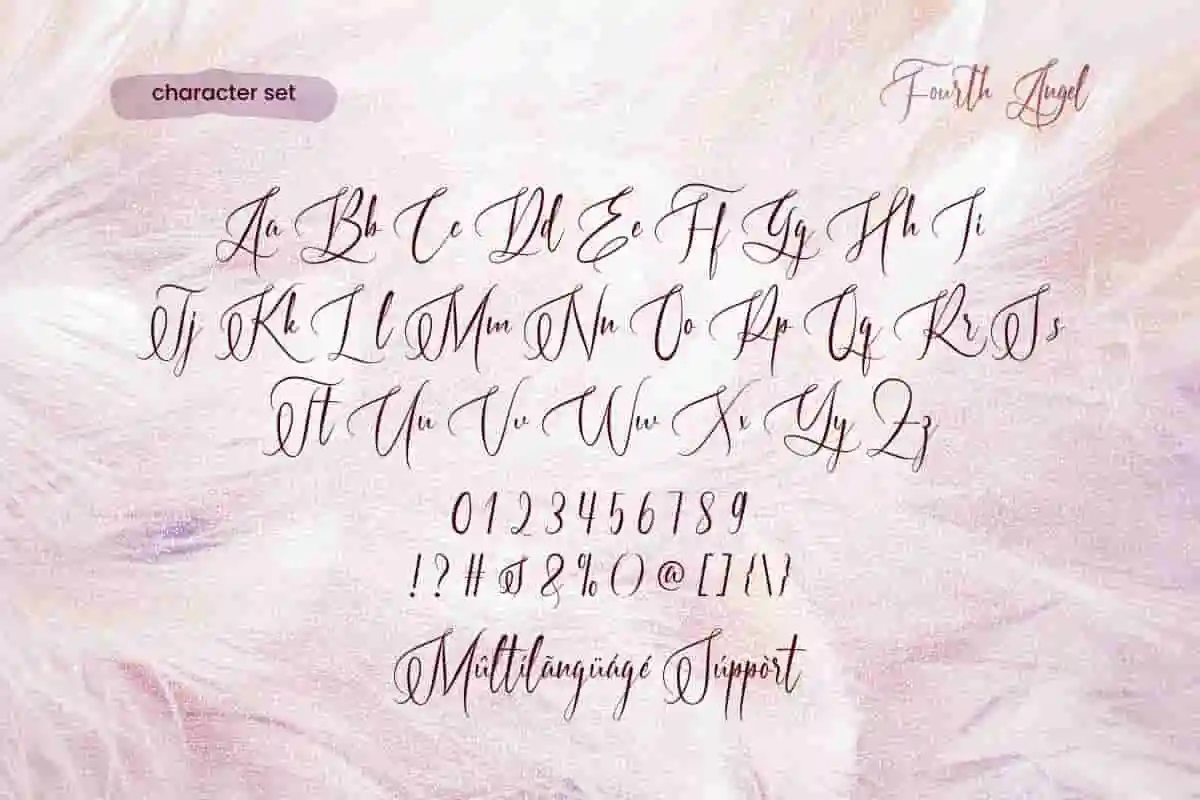 character set
Fourth Angel
Aa Bb Cc Dd Ee Ff Gg Hh Ii
Jj Kk Ll Mm Nn Oo Pp Qq Rr Ss
Tt Uu Vv Ww Xx Yy Zz
0123456789
!?#$&%()@[]{\}
Mûltilãngüágé Súppòrt